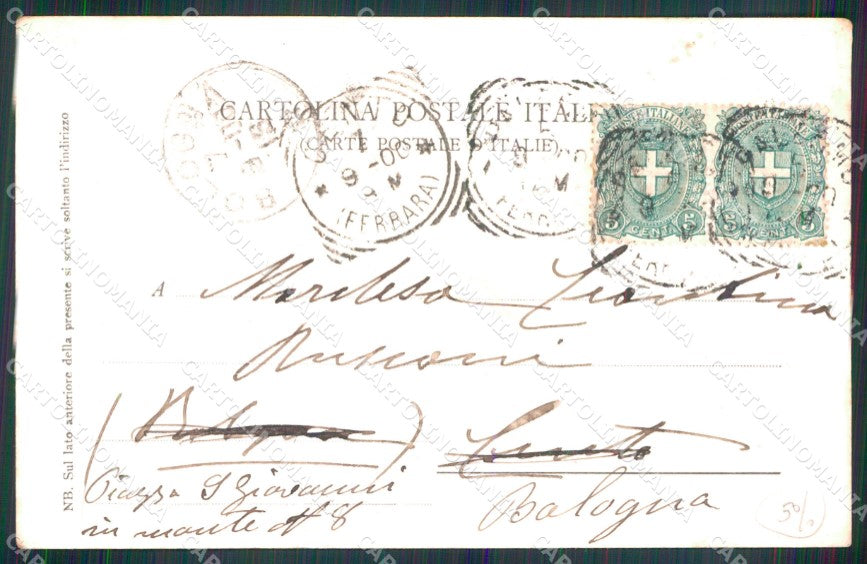 CARTOLINA POSTALE ITAL
(CARTE POSTALE D'ITALIE)
(FERRARA)
POSTE ITALIANE
5 CENT. 5
5 CENT. 5
A Marchesa
Rusconi
(Bologna) Cento
Piazza S Giovanni
in monte N 8
Bologna
NB. Sul lato anteriore della presente si scrive soltanto l'indirizzo
CARTOLINOMANIA